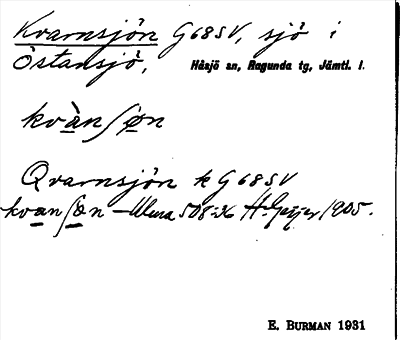 Kvarnsjön G68SV, sjö i
Östansjö, Håsjö sn, Ragunda tg, Jämtl. l.
kvànʃøn
Qvarnsjön k G68SV
kvanʃøn – Ulma 508:X H. Geijer 1905.
E. BURMAN 1931